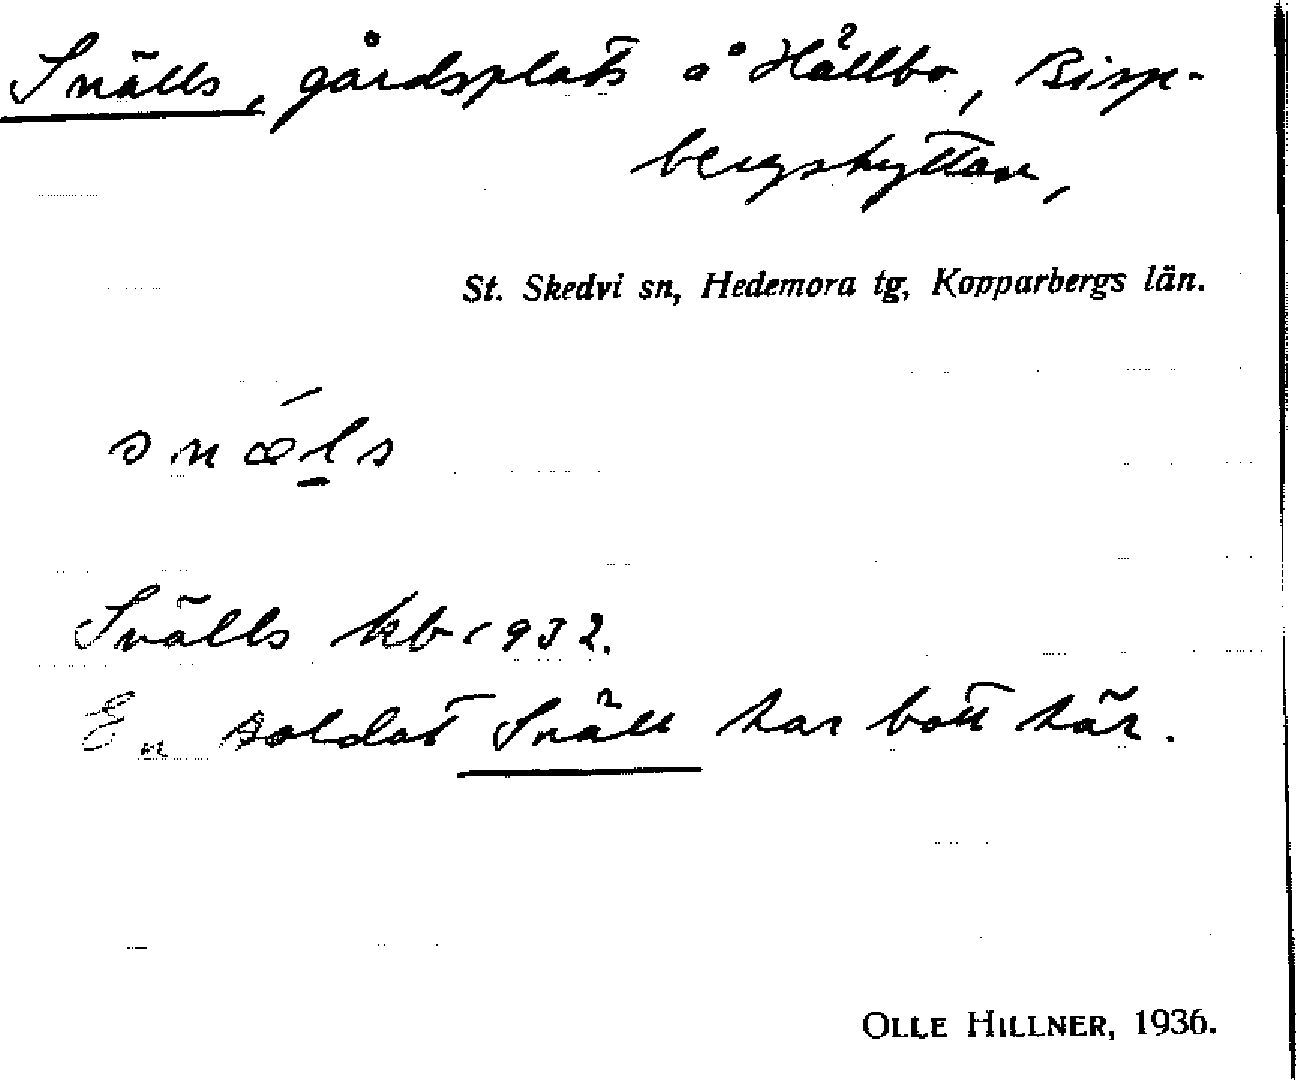 Snälls, gårdsplats å Hållbo, Bisp-
bergshyttan,
St. Skedvi sn, Hedemora tg, Kopparbergs län.
snǽls
Snälls kb 1932.
En soldat Snäll har bott här.
OLLE HILLNER, 1936.